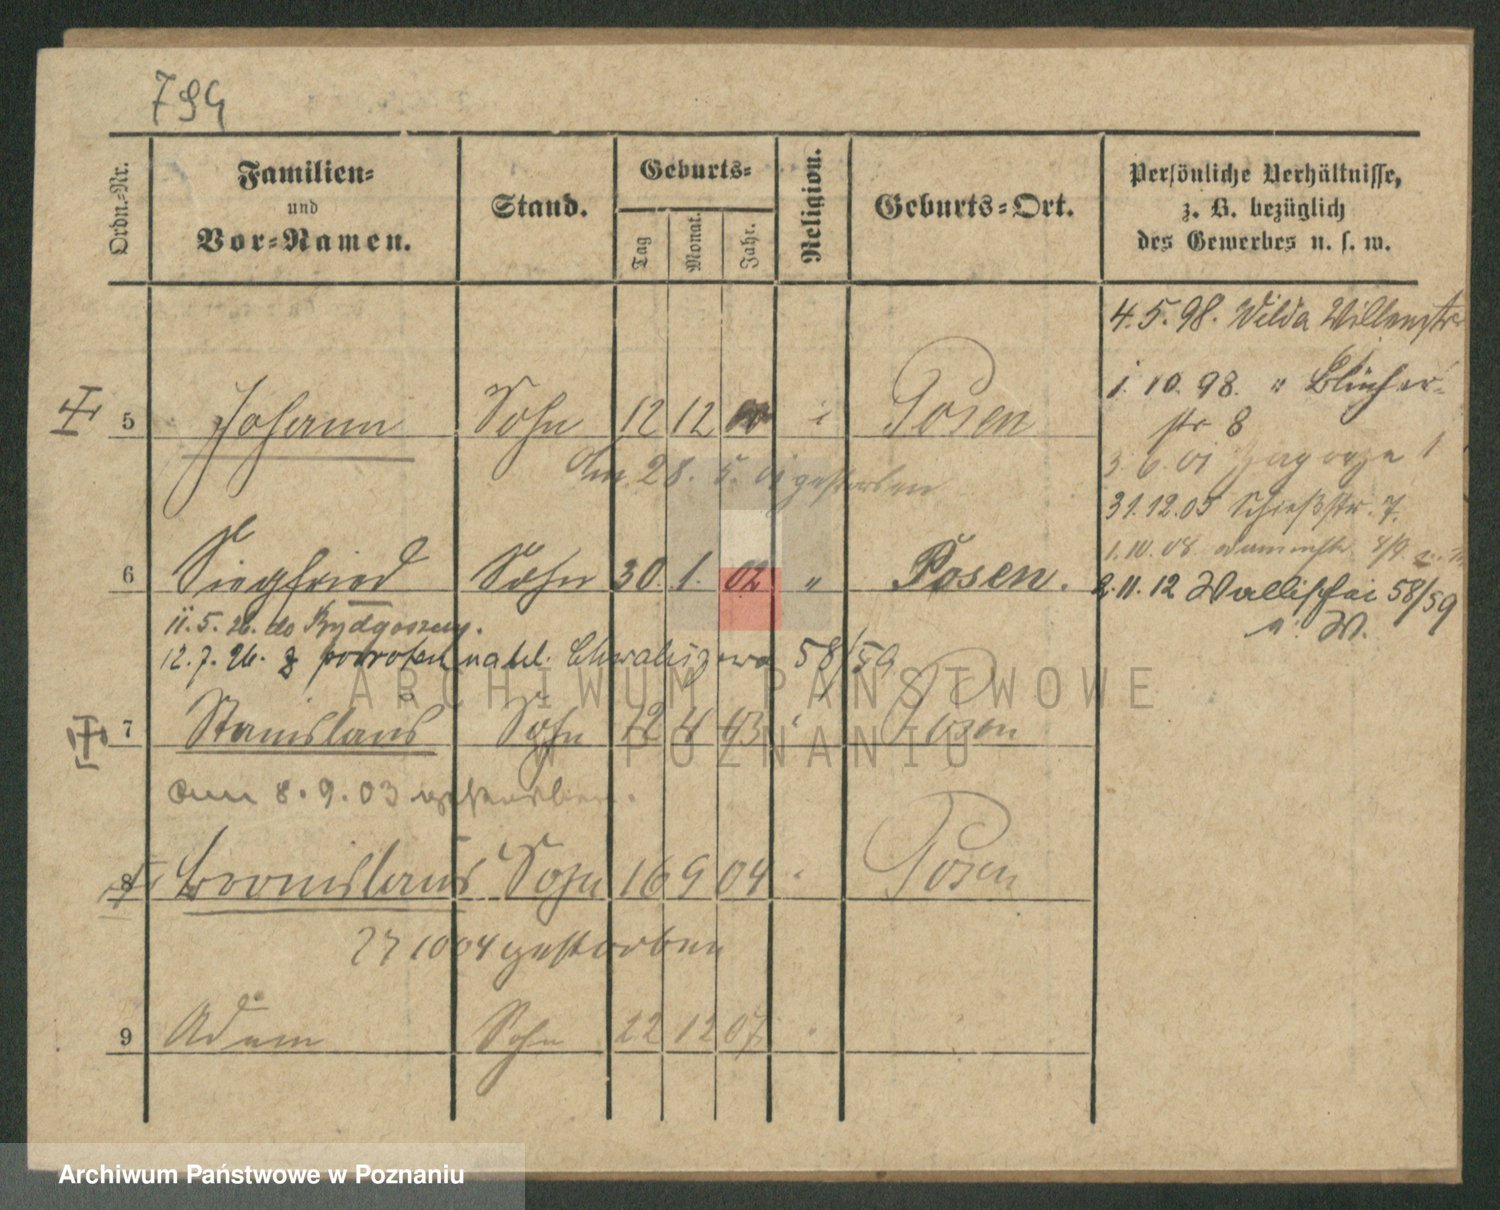 794
Ordn.-Nr.
Familien-
und
Vor-Namen.
Stand.
Geburts-
Tag
Monat.
Jahr.
Religion.
Geburts-Ort.
Persönliche Verhältnisse,
z. B. bezüglich
des Gewerbes u. s. w.
4.5.98. Wilda
1.10.98. " Blücher-
str 8
3.6.01 Zagorze 1
31.12.05 Schießstr. 7.
1.10.08
2.11.12 Wallischei 58/59
5 Johann Sohn 12 12 00 i Posen
Am 28.5.01 gestorben
6 Siegfried Sohn 30. 1. 02 " Posen.
11.5.26. do Bydgoszczy.
12.7.26. z powrotem nadel. Chwaliszewo 58/59
7 Stanislaus Sohn 12 4 03 i Posen
Am 8.9.03 gestorben.
8 Bronislaus Sohn 16 9 04 Posen
27 10 04 gestorben
9 Adam Sohn 22 12 07
ARCHIWUM PAŃSTWOWE
W POZNANIU
Archiwum Państwowe w Poznaniu